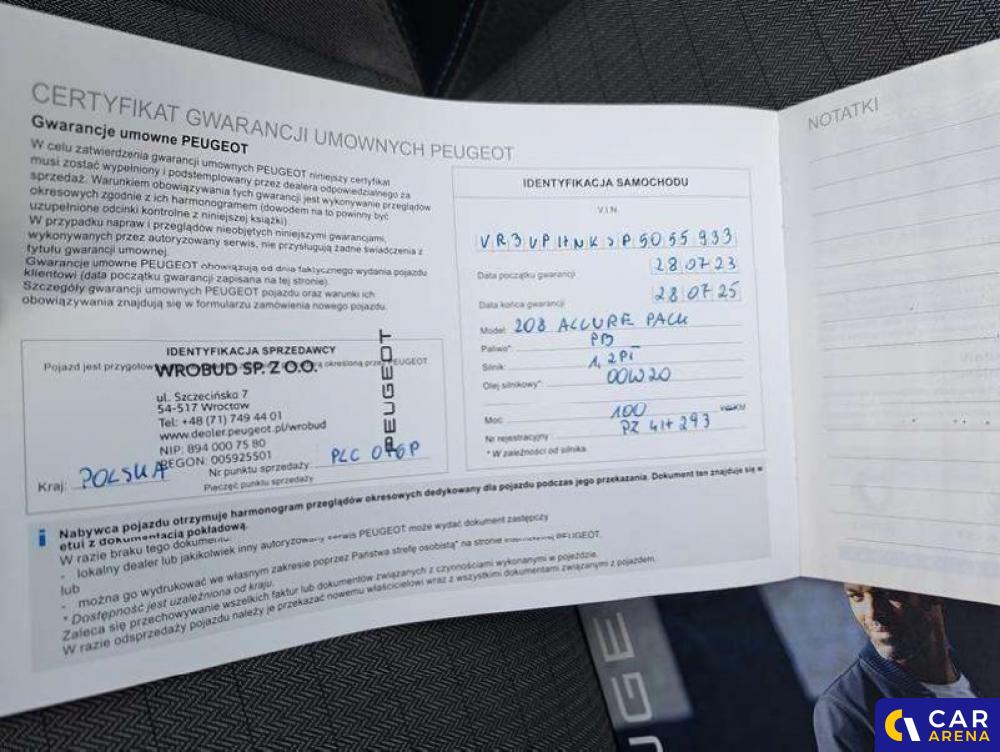 CERTYFIKAT GWARANCJI UMOWNYCH PEUGEOT
Gwarancje umowne PEUGEOT
W celu zatwierdzenia gwarancji umownych PEUGEOT niniejszy certyfikat
musi zostać wypełniony i podstemplowany przez dealera odpowiedzialnego za
sprzedaż. Warunkiem obowiązywania tych gwarancji jest wykonywanie przeglądów
okresowych zgodnie z ich harmonogramem (dowodem na to powinny być
uzupełnione odcinki kontrolne z niniejszej książki).
W przypadku napraw i przeglądów nieobjętych niniejszymi gwarancjami,
wykonywanych przez autoryzowany serwis, nie przysługują żadne świadczenia z
tytułu gwarancji umownej.
Gwarancje umowne PEUGEOT obowiązują od dnia faktycznego wydania pojazdu
klientowi (data początku gwarancji zapisana na tej stronie).
Szczegóły gwarancji umownych PEUGEOT pojazdu oraz warunki ich
obowiązywania znajdują się w formularzu zamówienia nowego pojazdu.
IDENTYFIKACJA SPRZEDAWCY
Pojazd jest przygotow określoną przez PEUGEOT
WROBUD SP. Z O.O.
ul. Szczecińska 7
54-517 Wrocław
Tel: +48 (71) 749 44 01
www.dealer.peugeot.pl/wrobud
NIP: 894 000 75 80
REGON: 005925501
PEUGEOT
Kraj: POLSKA
Nr punktu sprzedaży: PLC
Pieczęć punktu sprzedaży
IDENTYFIKACJA SAMOCHODU
V.I.N.
Data początku gwarancji 28 07 23
Data końca gwarancji 28 07 25
Model: 208 ALLURE PACK
Paliwo*: PB
Silnik: 1,2
Olej silnikowy*: 00W20
Moc: 100 KM
Nr rejestracyjny: PZ 4H293
* W zależności od silnika.
i Nabywca pojazdu otrzymuje harmonogram przeglądów okresowych dedykowany dla pojazdu podczas jego przekazania. Dokument ten znajduje się w
etui z dokumentacją pokładową.
W razie braku tego dokumentu:
- lokalny dealer lub jakikolwiek inny autoryzowany serwis PEUGEOT może wydać dokument zastępczy
lub
- można go wydrukować we własnym zakresie poprzez Państwa strefę osobistą* na stronie internetowej PEUGEOT.
* Dostępność jest uzależniona od kraju.
Zaleca się przechowywanie wszelkich faktur lub dokumentów związanych z czynnościami wykonywanymi w pojeździe.
W razie odsprzedaży pojazdu należy je przekazać nowemu właścicielowi wraz z wszystkimi dokumentami związanymi z pojazdem.
NOTATKI
UGE
CAR
ARENA